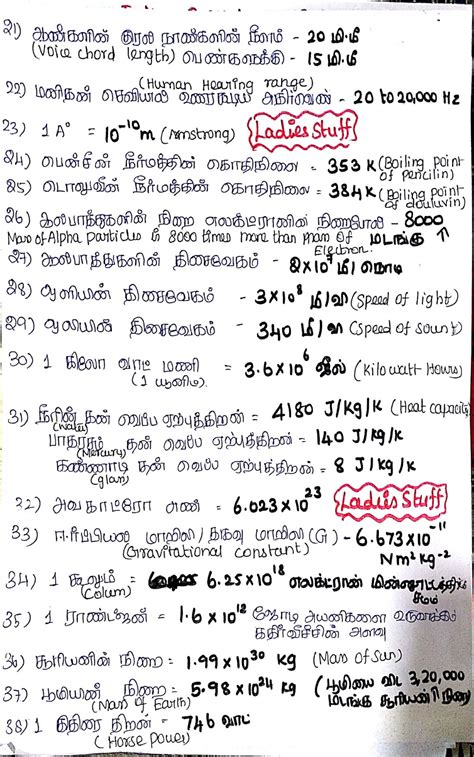 21) ஆண்களின் குரல் நாண்களின் நீளம் - 20 மி.மீ
(Voice chord length) பெண்களுக்கு - 15 மி.மீ
(Human Hearing range)
22) மனிதன் செவியால் உணரக்கூடிய அதிர்வெண் - 20 to 20,000 Hz
23) 1 A° = 10⁻¹⁰ m (Armstrong) Ladies Stuff
24) பென்சீன் நீர்மத்தின் கொதிநிலை = 353 K (Boiling point of Pencilin)
25) டொலுவீன் நீர்மத்தின் கொதிநிலை = 384 K (Boiling point of douluvin)
26) ஆல்பாத்துகளின் நிறை எலக்ட்ரானின் நிறையைபோல் - 8000 மடங்கு ↑
Mass of Alpha particles is 8000 times more than mass of Electron.
27) ஆல்பாத்துகளின் திசைவேகம் - 2×10⁷ மீ/நொடி
28) ஒளியின் திசைவேகம் - 3×10⁸ மீ/வி (Speed of light)
29) ஒலியின் திசைவேகம் = 340 மீ/வி (Speed of sount)
30) 1 கிலோ வாட் மணி = 3.6×10⁶ ஜீல் (Kilowatt Hours)
(1 யூனிட்)
31) நீரின் தன் வெப்ப ஏற்புத்திறன் = 4180 J/kg/k (Heat capacity)
(Water)
பாதரசம் தன் வெப்ப ஏற்புத்திறன் = 140 J/kg/k
(Mercury)
கண்ணாடி தன் வெப்ப ஏற்புத்திறன் = 8 J/kg/k
(glass)
32) அவகாட்ரோ எண் = 6.023×10²³ Ladies Stuff
33) ஈர்ப்பியல் மாறிலி / தகவு மாறிலி (G) - 6.673×10⁻¹¹
(Gravitational constant) Nm²kg⁻²
34) 1 கூலும் = 6.25×10¹⁸ எலக்ட்ரான்
(Colum)
35) 1 ராண்ட்ஜன் = 1.6×10¹² ஜோடி அயனிகளை உருவாக்கும்
கதிர்வீச்சின் அளவு
36) சூரியனின் நிறை = 1.99×10³⁰ kg (Mass of Sun)
37) பூமியின் நிறை = 5.98×10²⁴ kg (பூமியை விட 3,20,000
(Mass of Earth) மடங்கு சூரியனின் நிறை)
38) 1 குதிரை திறன் = 746 வாட்
(Horse Power)